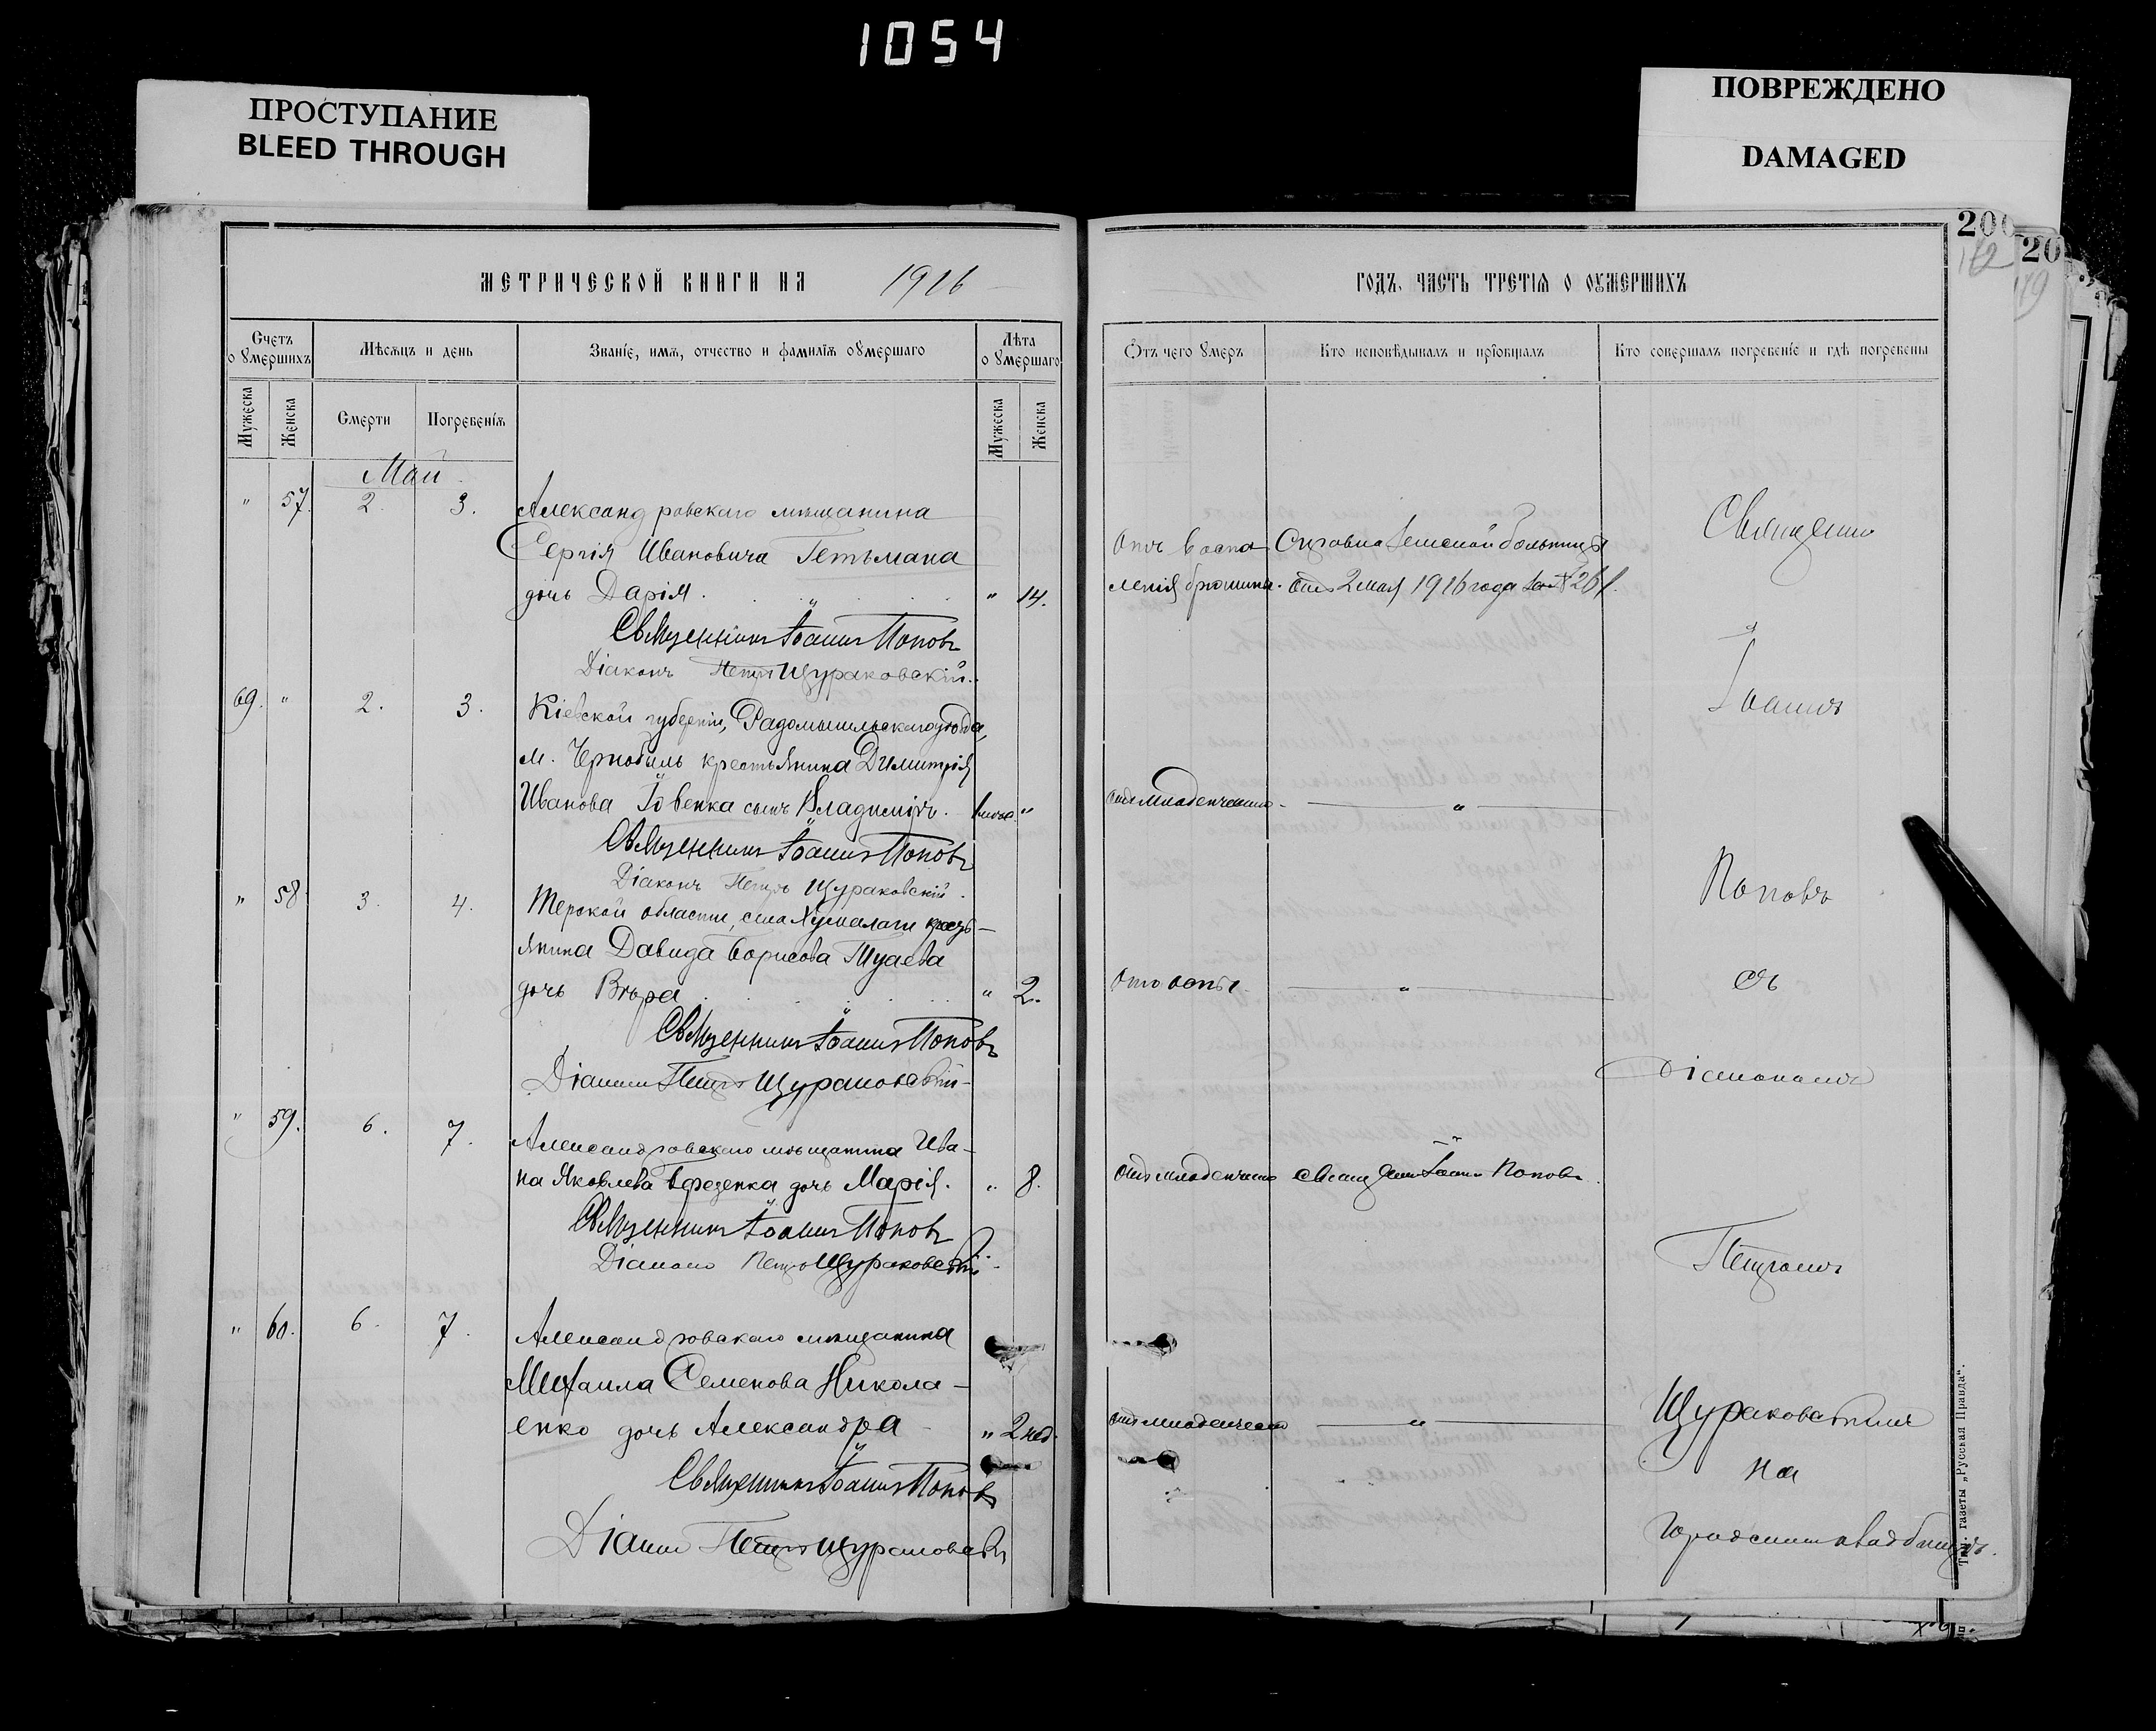 1054
ПРОСТУПАНИЕ
BLEED THROUGH
ПОВРЕЖДЕНО
DAMAGED
МЕТРИЧЕСКОЙ КНИГИ НА 1916
Счетъ о умершихъ
Мѣсяцъ и день
Званіе, имя, отчество и фамилія умершаго
Лѣта умершаго
Мужеска
Женска
Смерти
Погребенія
Мужеска
Женска
Май
" 57. 2. 3. Александровскаго мѣщанина
Сергія Ивановича Гетьмана
дочь Дарія. " 14.
Священникъ Іоаннъ Поповъ
Діаконъ Петръ Щураковскій.
69. " 2. 3. Кіевской губерніи, Радомысльскаго уѣзда,
м. Чернобыль крестьянина Димитрія
Иванова Іовенка сынъ Владиміръ. "
Священникъ Іоаннъ Поповъ
Діаконъ Петръ Щураковскій.
" 58. 3. 4. Терской области, села Хумалаги кресть-
янина Давида Борисова Туаева
дочь Вѣра " 2.
Священникъ Іоаннъ Поповъ
Діаконъ Петръ Щураковскій
" 59. 6. 7. Александровскаго мѣщанина Ива-
на Яковлева дочь Марія. " 8.
Священникъ Іоаннъ Поповъ
Діаконъ Петръ Щураковскій
" 60. 6. 7. Александровскаго мѣщанина
Михаила Семенова Никола-
енко дочь Александра " 2 нед.
Священникъ Іоаннъ Поповъ
Діаконъ Петръ Щураковскій
200
20
112
119
ГОДЪ, ЧАСТЬ ТРЕТІЯ О УМЕРШИХЪ
Отъ чего умеръ
Кто исповѣдывалъ и пріобщалъ
Кто совершалъ погребеніе и гдѣ погребены
Отъ воспа- Земской больницы
ленія брюшины. отъ 2 мая 1916 года за № 261.
отъ младенческой "
отъ оспы "
отъ младенческой священникъ Іоаннъ Поповъ.
отъ младенческой "
Священникъ
Іоаннъ
Поповъ
съ
діакономъ
Петромъ
Щураковскимъ
на
городскомъ кладбищѣ.
Тип. газеты „Русская Правда".